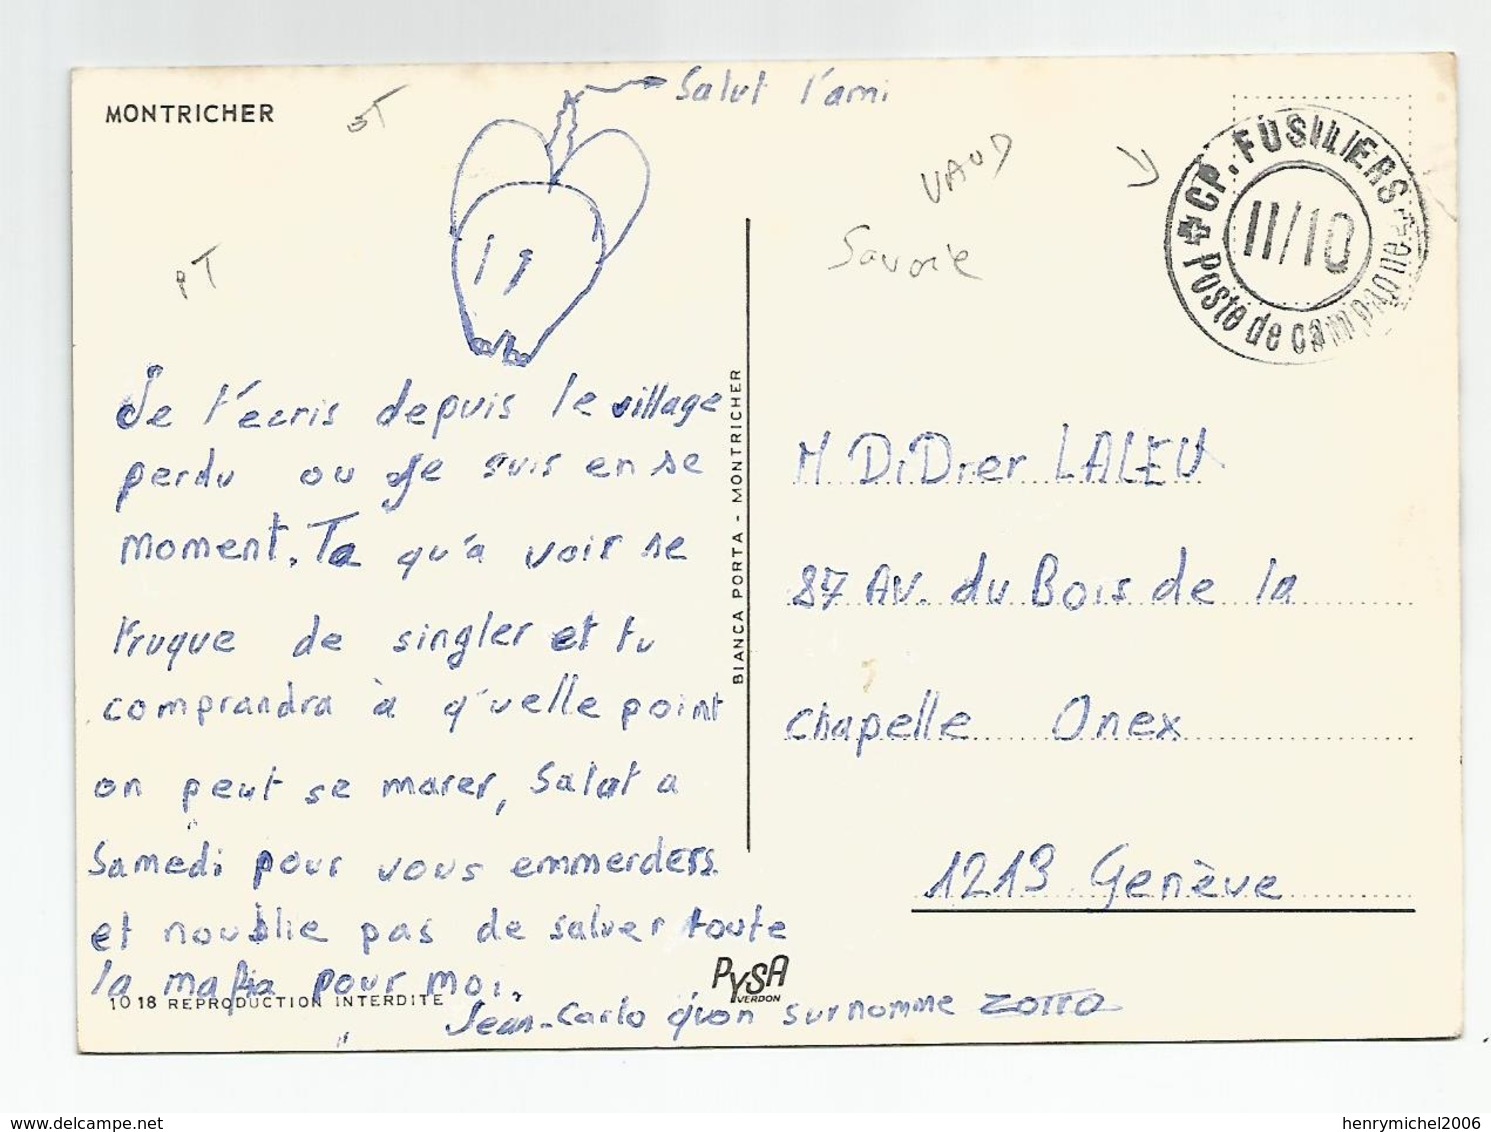 MONTRICHER
Salut l'ami
VAUD
Savoie
CP. FUSILIERS
II/10
Poste de campagne
Je t'écris depuis le village
perdu ou Je suis en se
moment. Ta qu'a voir se
truque de singler et tu
comprandra à q'uelle point
on peut se marer, Salut a
Samedi pour vous emmerders
et noublie pas de saluer toute
la mafia pour moi.
Jean-Carlo q'uon surnomme ZOTTO
M DiDier LALEU
87 AV. du Bois de la
Chapelle Onex
1213 Genève
BIANCA PORTA - MONTRICHER
1018 REPRODUCTION INTERDITE
PYSA
YVERDON
delcampe.net
henrymichel2006